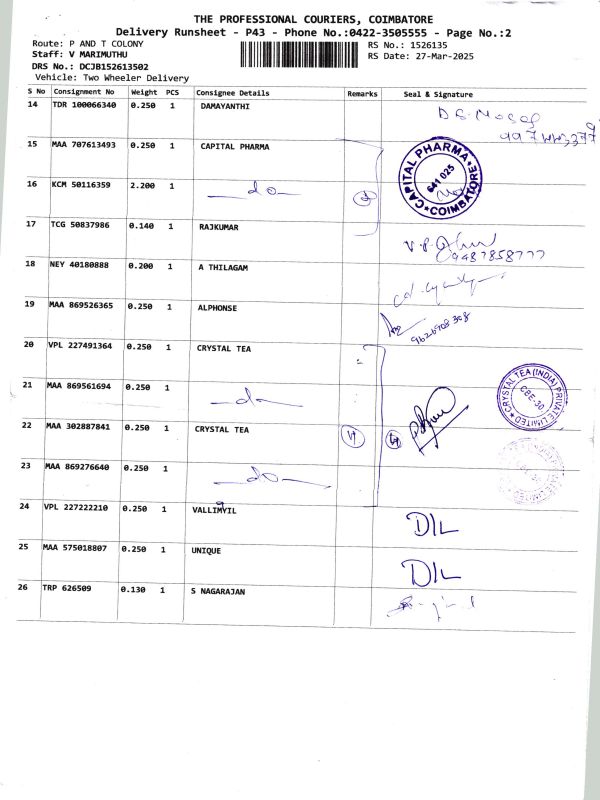 THE PROFESSIONAL COURIERS, COIMBATORE
Delivery Runsheet - P43 - Phone No.:0422-3505555 - Page No.:2
Route: P AND T COLONY
RS No.: 1526135
Staff: V MARIMUTHU
RS Date: 27-Mar-2025
DRS No.: DCJB152613502
Vehicle: Two Wheeler Delivery
S No Consignment No Weight PCS Consignee Details Remarks Seal & Signature
14 TDR 100066340 0.250 1 DAMAYANTHI
15 MAA 707613493 0.250 1 CAPITAL PHARMA
CAPITAL PHARMA
641 025
COIMBATORE
16 KCM 50116359 2.200 1 —do— 2
17 TCG 50837986 0.140 1 RAJKUMAR
9487858777
18 NEY 40180888 0.200 1 A THILAGAM
19 MAA 869526365 0.250 1 ALPHONSE
9626908308
20 VPL 227491364 0.250 1 CRYSTAL TEA
CRYSTAL TEA (INDIA) PRIVATE LIMITED
CBE-30
21 MAA 869561694 0.250 1 —do—
22 MAA 302887841 0.250 1 CRYSTAL TEA
23 MAA 869276640 0.250 1 —do—
24 VPL 227222210 0.250 1 VALLIMYIL D/L
25 MAA 575018807 0.250 1 UNIQUE D/L
26 TRP 626509 0.130 1 S NAGARAJAN